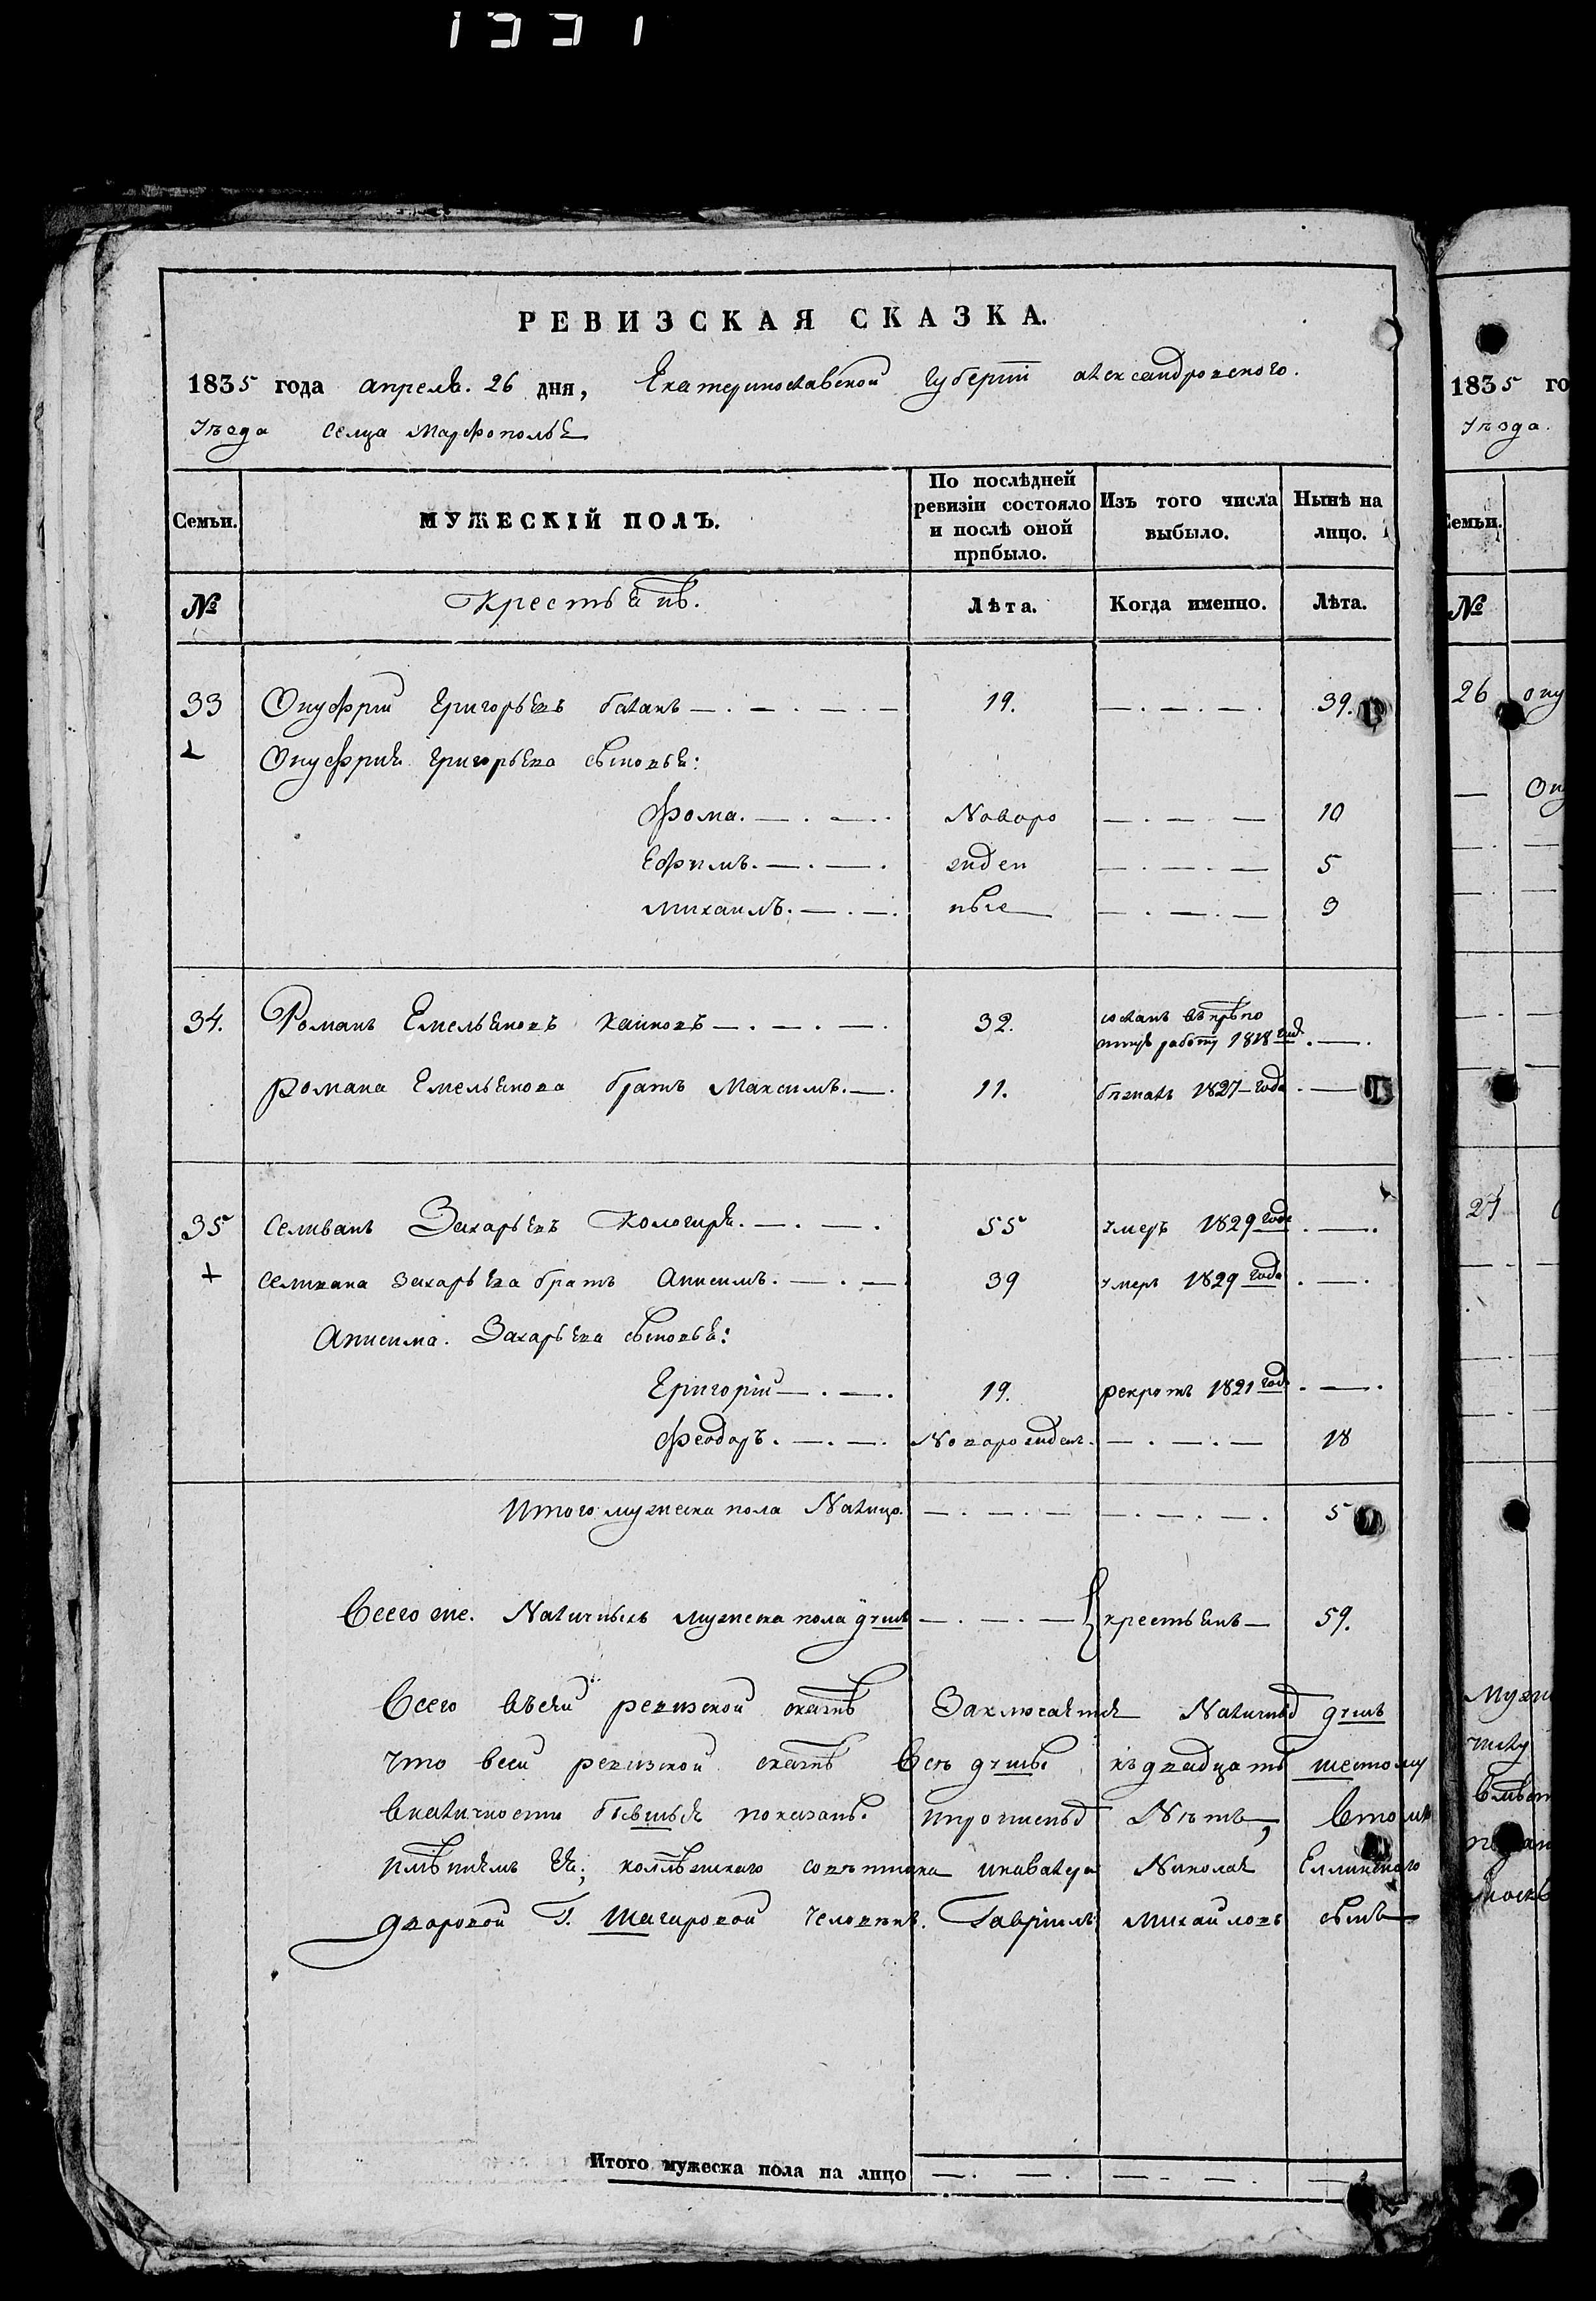 1331
РЕВИЗСКАЯ СКАЗКА.
1835 года апреля. 26 дня, Екатеринославской губернии александровского.
уѣзда селца Марфополья
Семьи. МУЖЕСКІЙ ПОЛЪ. По послѣдней ревизіи состояло и послѣ оной прибыло. Изъ того числа выбыло. Нынѣ на лицо.
№ Крестьянъ. Лѣта. Когда именно. Лѣта.
33 Онуфрий Григорьевъ баланъ 19. 39.
Онуфрия Григорьева сыновья:
Фома. Новоро 10
Ефимъ. жден 5
михаилъ. ные 3
34. Романъ Емельяновъ 32. сосланъ работу 1818 года
романа Емельянова братъ Максимъ. 11. бежалъ 1827 года
35 селиванъ Захарьевъ 55 умеръ 1829 года
селивана захарьева братъ Анисимъ. 39 умеръ 1829 года
Анисима. Захарьева сыновья:
Григорій 19. рекрутъ 1821 года
феодоръ. Новорожден. 18
Итого мужеска пола Налицо. 5
Всего же. Наличныхъ мужеска пола душъ крестьянъ 59.
Всего въсей ревизской сказкѣ Заключается Наличныхъ душъ
что всей ревизской сказкѣ Все душы къ двадцать шестому
Вналичности бывшыя показаны. ипрописныхъ Нѣтъ, Втомъ
коллѣжскаго совѣтника икавалера Николая
дворовой Г. человѣкъ. Гаврилъ михайловъ сынъ
Итого мужеска пола на лицо
1835 го
уѣзда.
Семьи.
№
26 ону
Ону
27